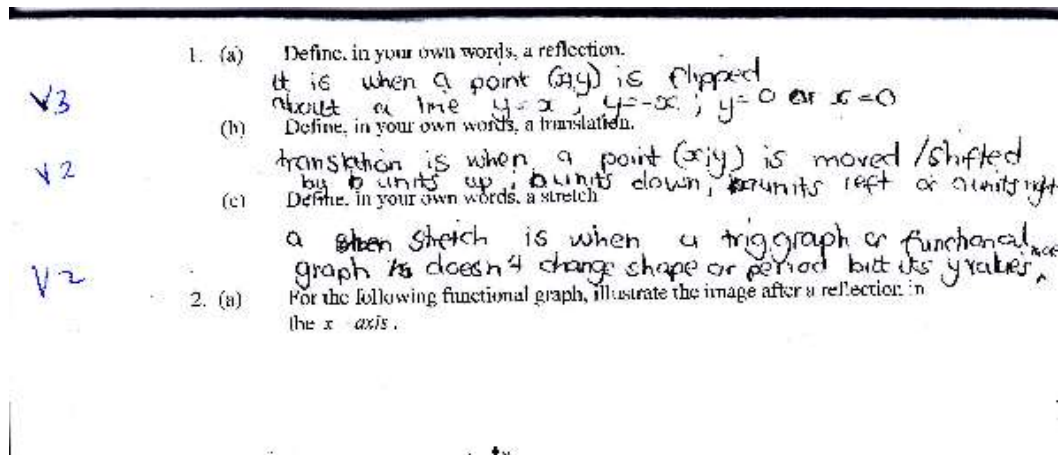 1. (a) Define, in your own words, a reflection.
it is when a point (x;y) is flipped
V3 about a line y=x ; y=-x ; y=0 or x=0
(b) Define, in your own words, a translation.
V2 translation is when a point (x;y) is moved /shifted
by b units up, b units down, a units left or a units right
(c) Define, in your own words, a stretch
a stretch is when a trig graph or functional
V2 graph doesn't change shape or period but its y values
2. (a) For the following functional graph, illustrate the image after a reflection in
the x - axis .